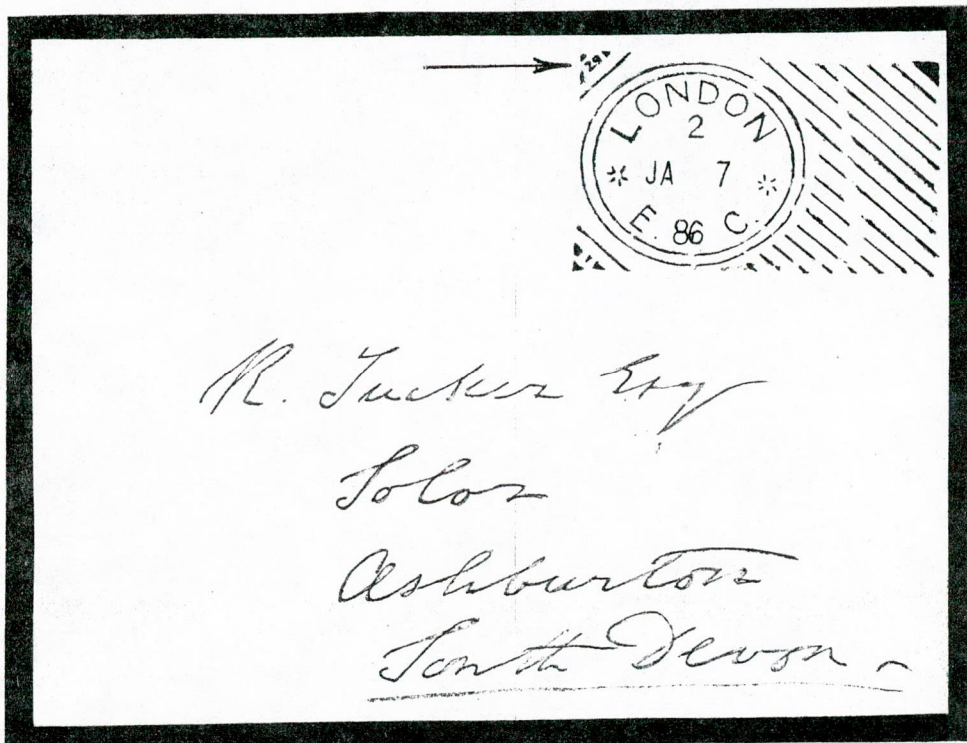 29
LONDON
2
JA 7
E. C
86
R. Tucker Esq
Solor
Ashburton
South Devon